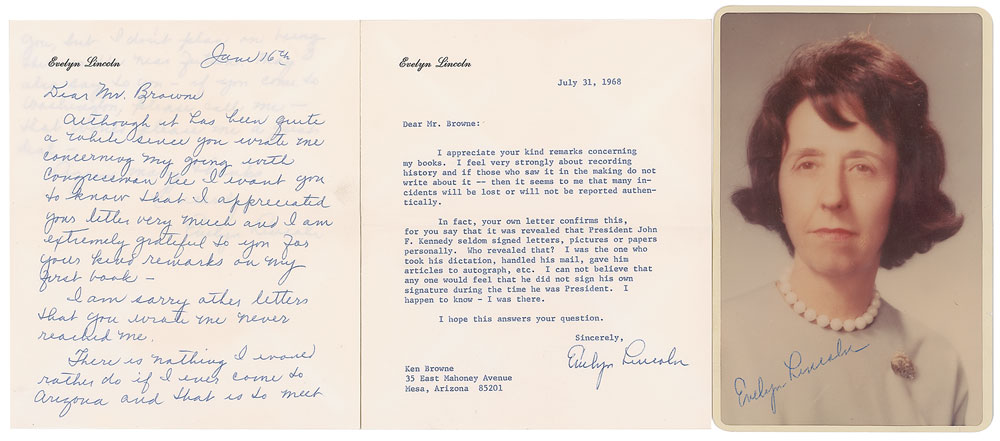 Evelyn Lincoln
June 16th
Dear Mr. Browne
Although it has been quite
a while since you wrote me
concerning my going with
Congressman Kee I want you
to know that I appreciated
your letter very much and I am
extremely grateful to you for
your kind remarks on my
first book -
I am sorry other letters
that you wrote me never
reached me.
There is nothing I would
rather do if I ever come to
Arizona and that is to meet
Evelyn Lincoln
July 31, 1968
Dear Mr. Browne:
I appreciate your kind remarks concerning
my books. I feel very strongly about recording
history and if those who saw it in the making do not
write about it -- then it seems to me that many in-
cidents will be lost or will not be reported authen-
tically.
In fact, your own letter confirms this,
for you say that it was revealed that President John
F. Kennedy seldom signed letters, pictures or papers
personally. Who revealed that? I was the one who
took his dictation, handled his mail, gave him
articles to autograph, etc. I can not believe that
any one would feel that he did not sign his own
signature during the time he was President. I
happen to know - I was there.
I hope this answers your question.
Sincerely,
Evelyn Lincoln
Ken Browne
35 East Mahoney Avenue
Mesa, Arizona 85201
Evelyn Lincoln